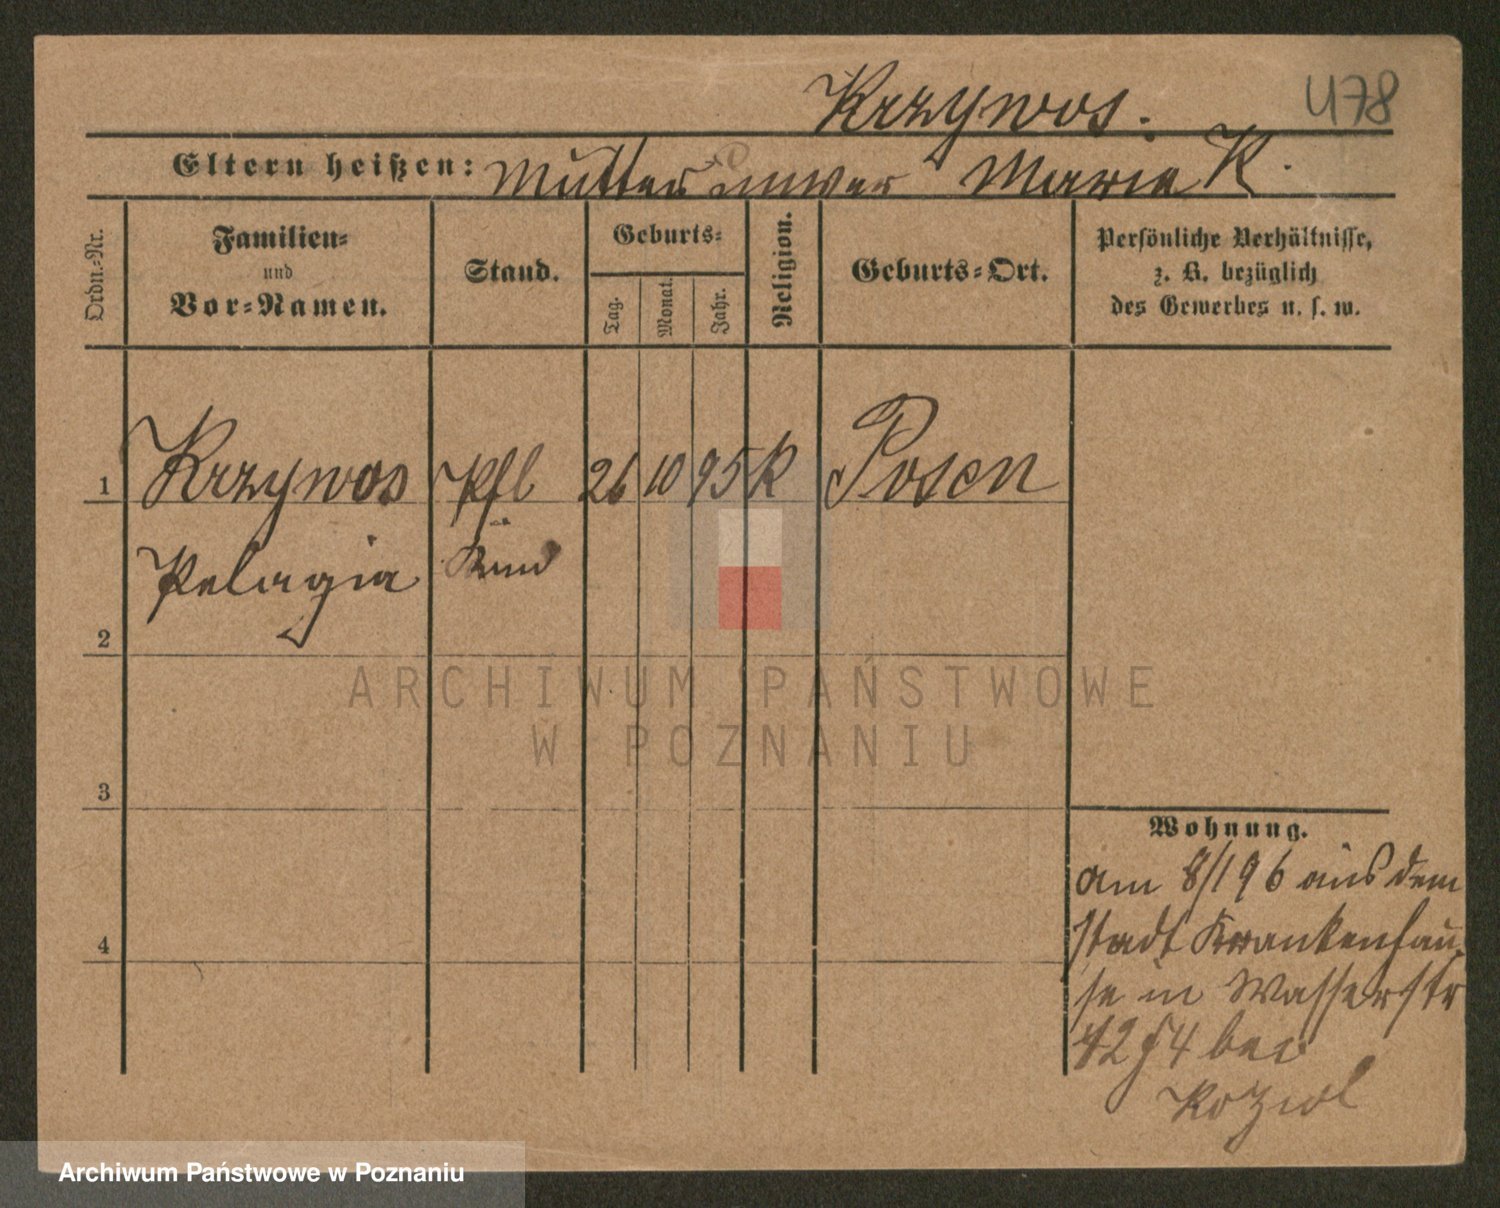 Krzywos.
478
Eltern heißen: Mutter unver Marie K.
Ordn.-Nr.
Familien-
und
Vor-Namen.
Stand.
Geburts-
Tag.
Monat.
Jahr.
Religion.
Geburts-Ort.
Persönliche Verhältnisse,
z. B. bezüglich
des Gewerbes u. s. w.
1 Krzywos Pfl 26 10 95 k Posen
Pelagia Kind
2
ARCHIWUM PAŃSTWOWE
W POZNANIU
3
Wohnung.
am 8/1 96 aus dem
stadt Krankenhau-
se in Wasserstr
bei
Koziol
4
Archiwum Państwowe w Poznaniu